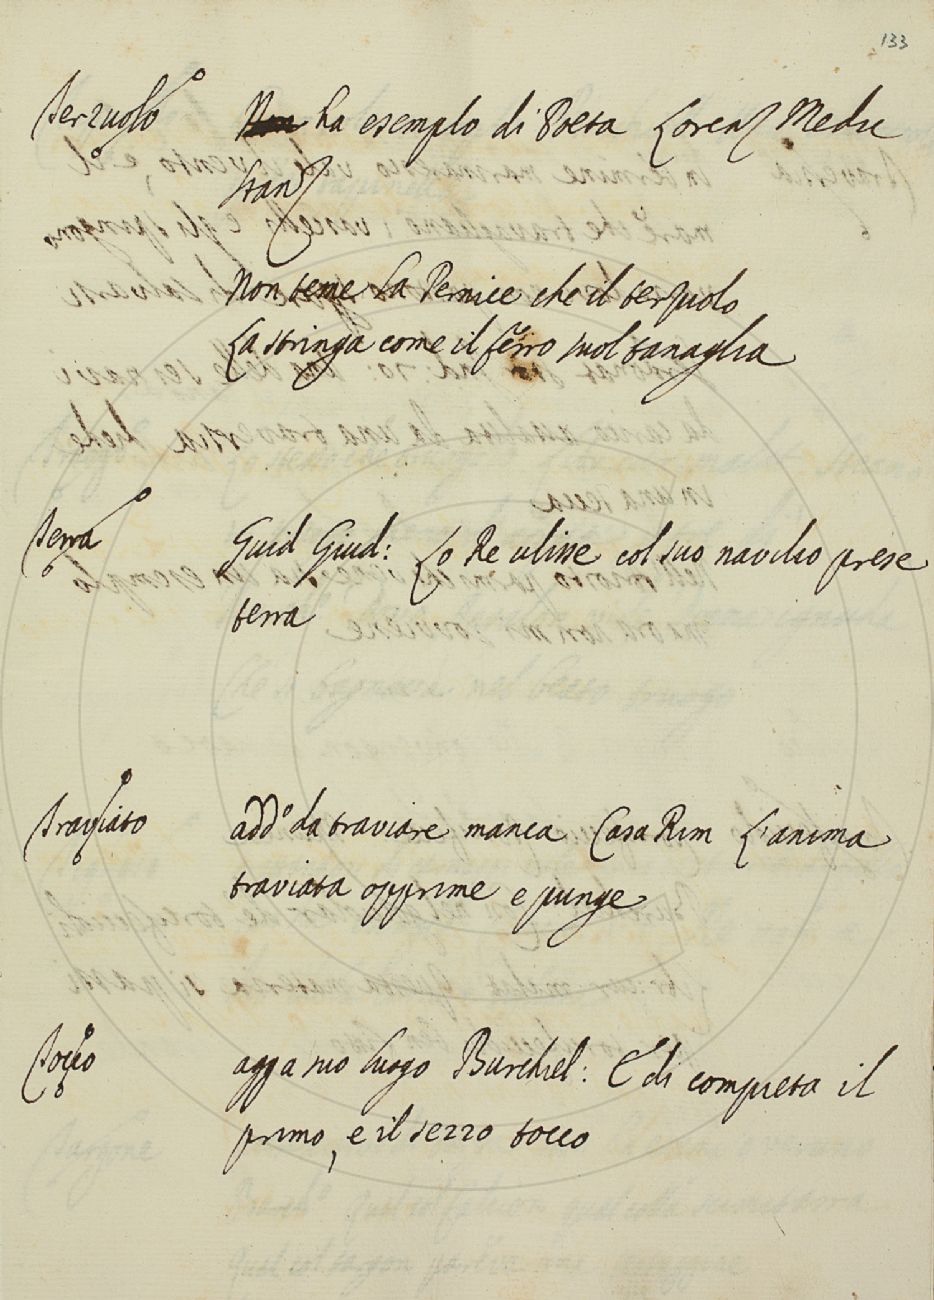 133
Terzuolo ha esempio di Poeta Lorenz Medic
stanz
Non teme La Pernice che il terzuolo
La stringa come il ferro suol tanaglia
Terra Guid Giud: Lo Re ulisse col suo navilio prese
terra
Traviato add.o da traviare manca Casa Rim L'anima
traviata opprime e punge
Tocco agg a suo luogo Burchiel: E di compieta il
primo, e il sezzo tocco